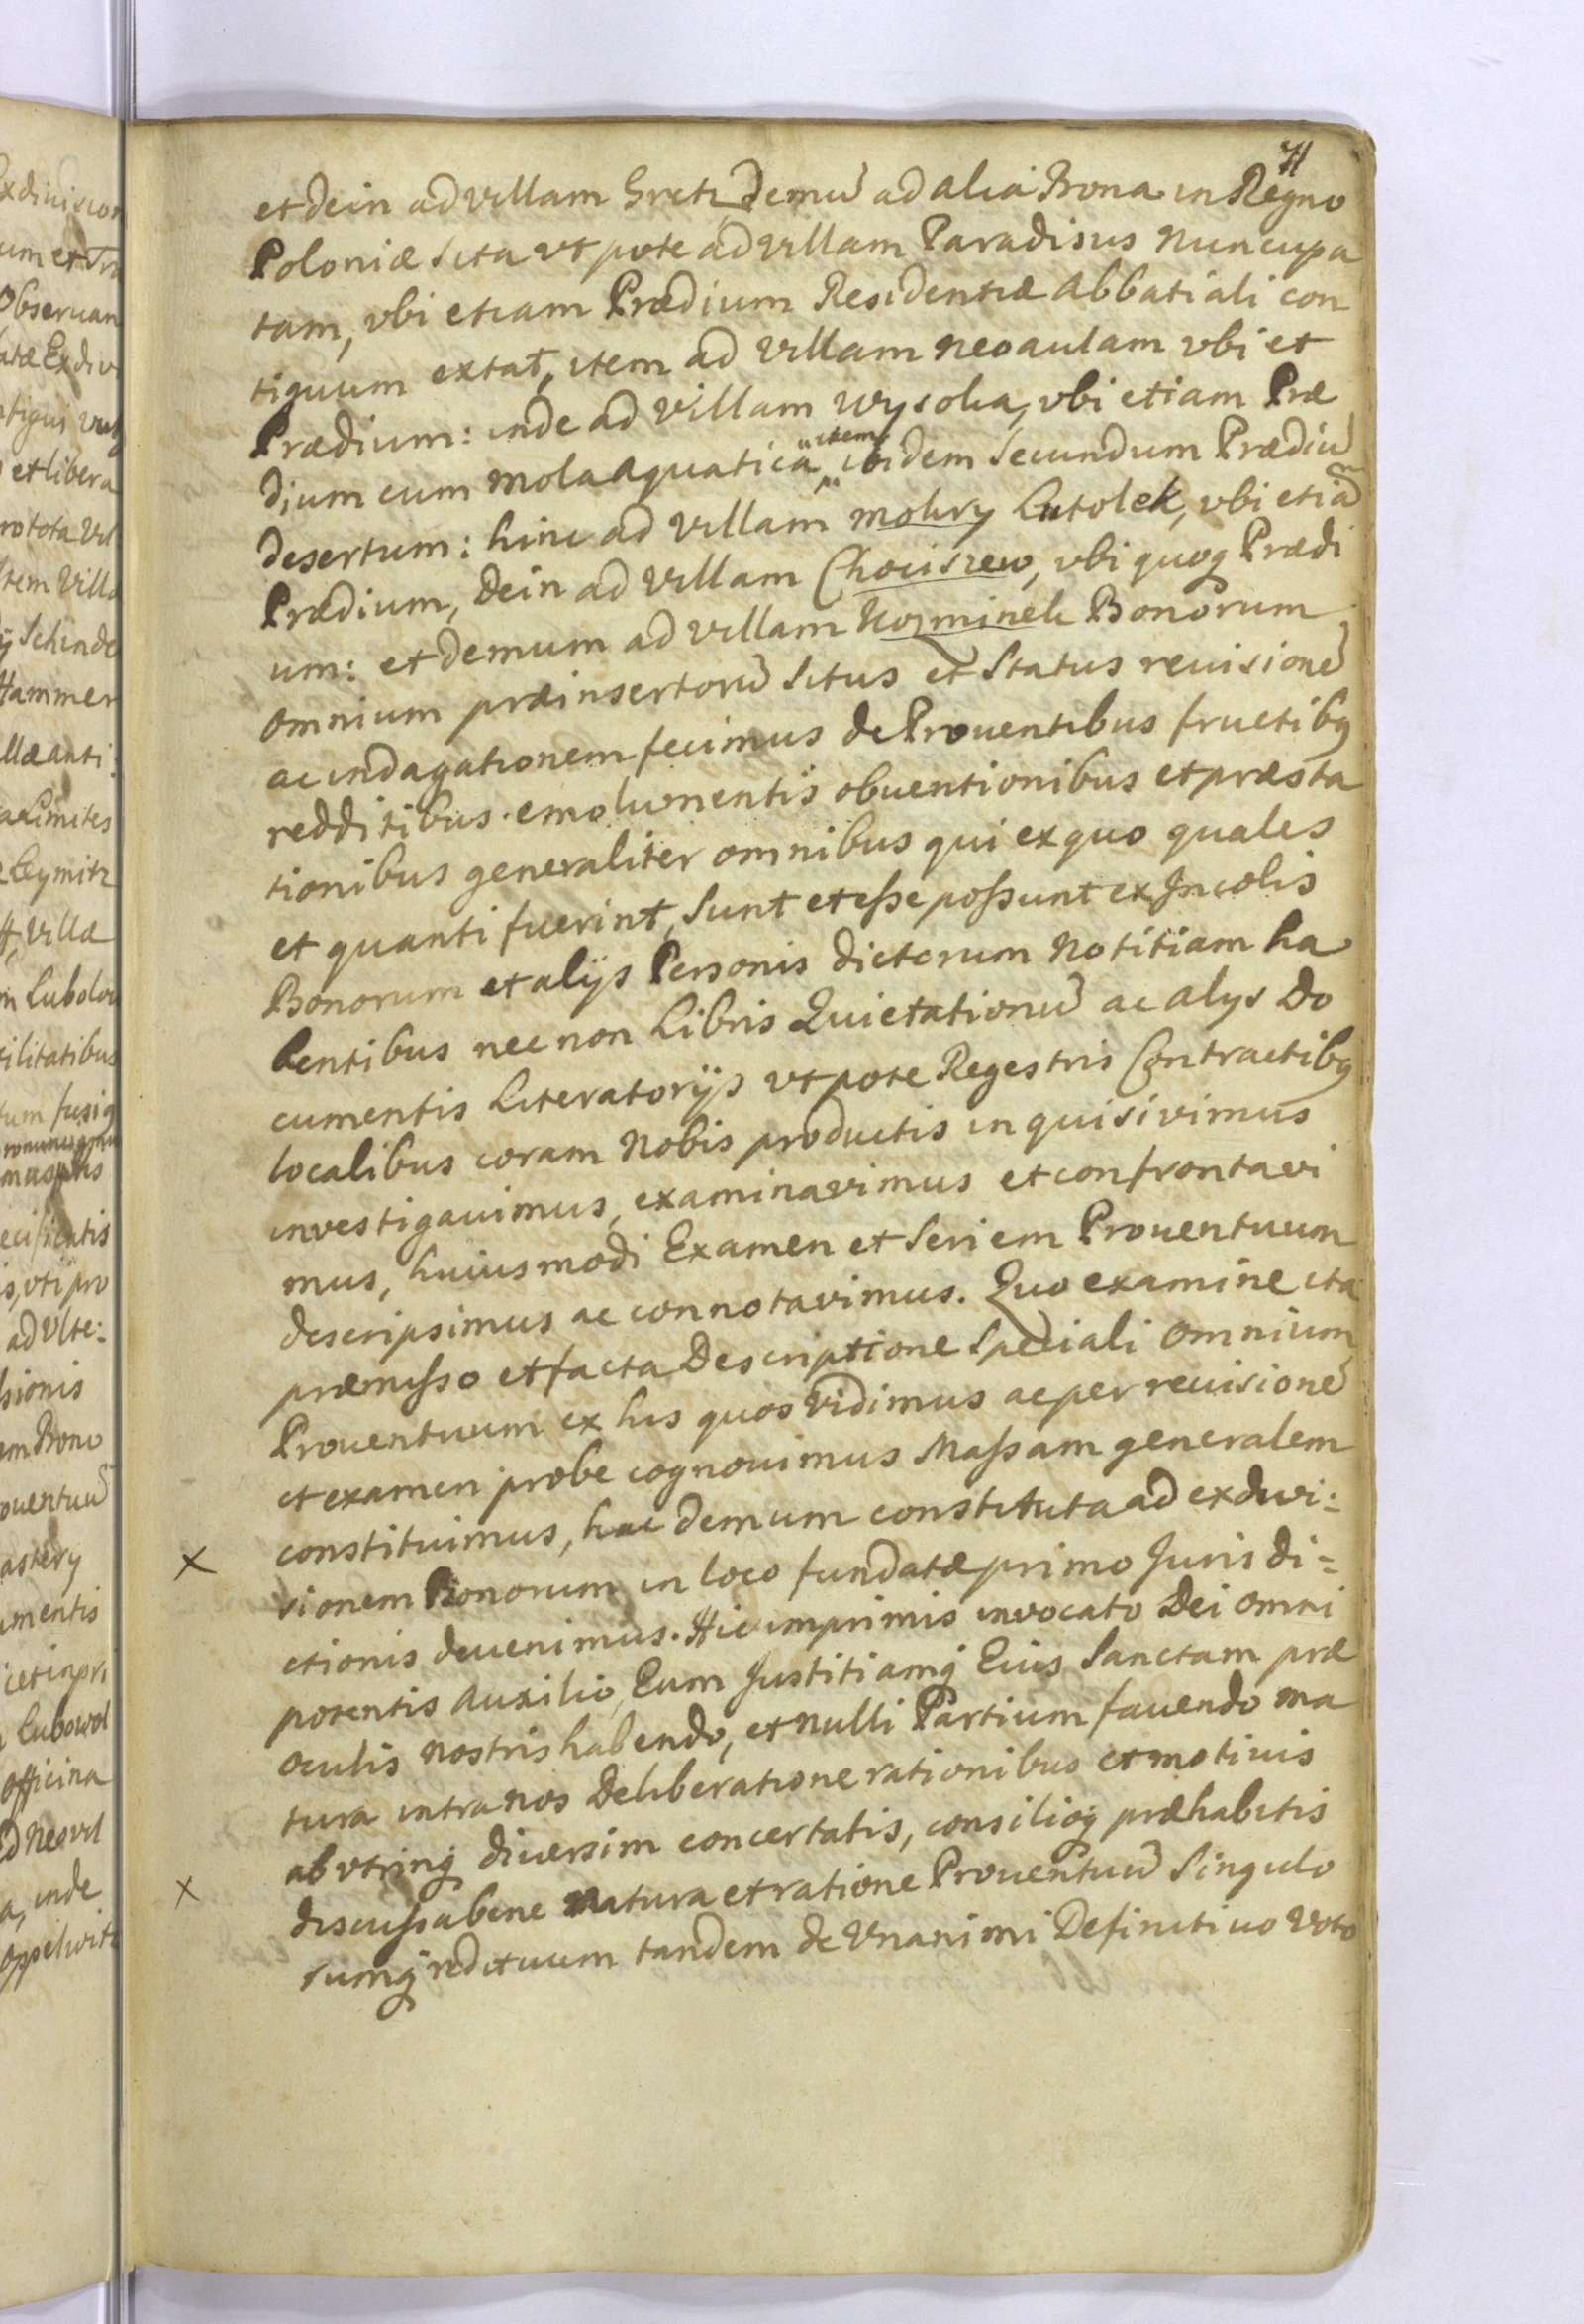 71
et dein ad villam Gretz, demũ ad alia Bona in Regno
Poloniæ sita vt pote ad villam Paradisus nuncupa
tam, vbi etiam Prædium Residentiæ Abbatiali con
tiguum extat, item ad villam neoaulam vbi et
Prædium: inde ad villam Wysoka, vbi etiam Præ
dium cum mola aquatica, item ibidem secundum Prædiũ
desertum: hinc ad villam mokry Lutolek, vbi etiã
Prædium, dein ad villam Chociszew, vbi quoq Prædi
um: et demum ad villam Kozminek Bonorum
omnium præinsertorũ situs et status reuisionẽ
ac indagationem fecimus de Prouentibus fructibq
redditibus emolumentis obuentionibus et præsta
tionibus generaliter omnibus qui ex quo quales
et quanti fuerint, sunt et esse possunt ex Incolis
Bonorum et alijs Personis dictorum notitiam ha
bentibus nec non Libris Quietationũ ac alijs Do
cumentis Literatorijs vt pote Regestris Contractibq
localibus coram nobis productis inquisivimus
investigauimus, examinavimus et confrontavi
mus, huiusmodi Examen et seriem Prouentuum
descripsimus ac connotavimus. Quo examine ita
præmisso et facta Descriptione speciali omnium
Prouentuum ex his quos vidimus ac per reuisionẽ
et examen probe cognouimus Massam generalem
constituimus, hac demum constituta ad exdivi:
x sionem Bonorum in loco fundatæ primo Jurisdi=
ctionis deuenimus. Hic imprimis invocato Dei omni
potentis Auxilio, Eum Justitiamq Eius Sanctam præ
oculis nostris habendo, et nulli Partium fauendo ma
tura intra nos deliberatione rationibus et motiuis
ab vtrinq diuersim concertatis, consilioq præhabitis
x discussa bene natura et ratione Prouentuũ singulo
rumq redituum tandem de Vnanimi Definitiuo Voto